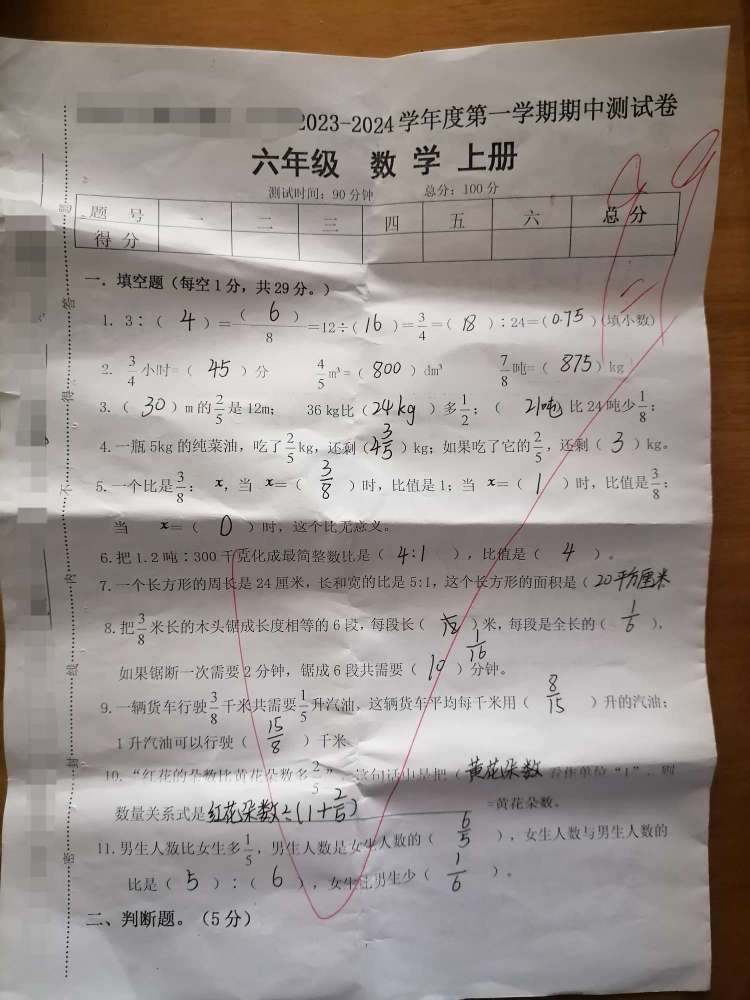 2023-2024学年度第一学期期中测试卷
六年级 数学 上册
测试时间：90分钟 总分：100分
99
题号 一 二 三 四 五 六 总分
得分
一．填空题（每空1分，共29分。）
1. 3：（ 4 ）=（ 6 ）/8=12÷（ 16 ）=3/4=（ 18 ）：24=（ 0.75 ）(填小数)
2. 3/4小时=（ 45 ）分 4/5m³=（ 800 ）dm³ 7/8吨=（ 875 ）kg
3.（ 30 ）m的2/5是12m； 36kg比（ 24kg ）多1/2；（ 21吨 比24吨少1/8；
4.一瓶5kg的纯菜油，吃了2/5kg，还剩（ 4 3/5 ）kg；如果吃了它的2/5，还剩（ 3 ）kg。
5.一个比是3/8：x，当 x=（ 3/8 ）时，比值是1；当 x=（ 1 ）时，比值是3/8；
当 x=（ 0 ）时，这个比无意义。
6.把1.2吨：300千克化成最简整数比是（ 4:1 ），比值是（ 4 ）。
7.一个长方形的周长是24厘米，长和宽的比是5:1，这个长方形的面积是（ 20平方厘米
8.把3/8米长的木头锯成长度相等的6段，每段长（ 1/16 ）米，每段是全长的（ 1/6 ），
如果锯断一次需要2分钟，锯成6段共需要（ 10 ）分钟。
9.一辆货车行驶3/8千米共需要1/5升汽油，这辆货车平均每千米用（ 8/15 ）升的汽油；
1升汽油可以行驶（ 15/8 ）千米
10.“红花的朵数比黄花朵数多2/5”，这句话中是把（ 黄花朵数 看作单位“1”，则
数量关系式是红花朵数÷(1+2/5) =黄花朵数。
11.男生人数比女生多1/5，男生人数是女生人数的（ 6/5 ），女生人数与男生人数的
比是（ 5 ）：（ 6 ），女生比男生少（ 1/6 ）。
二、判断题。（5分）